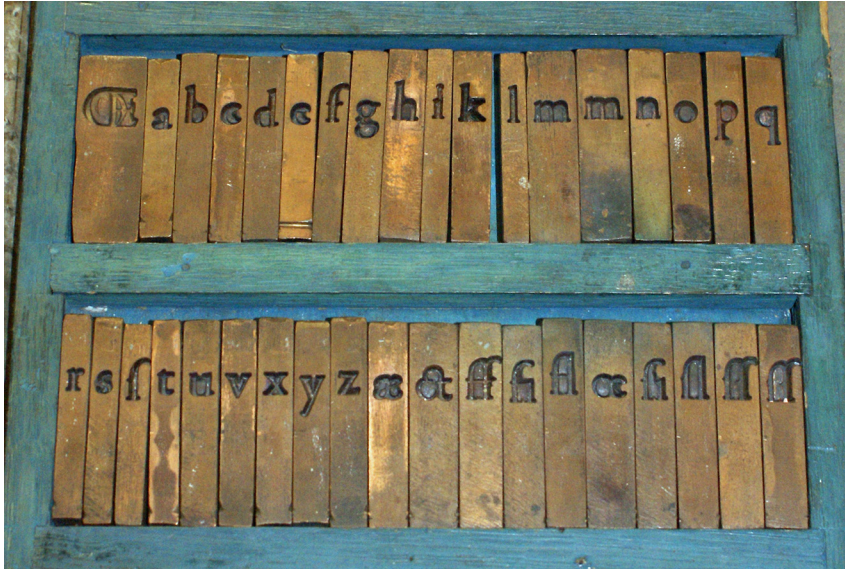 Œ a b c d e f g h i k l m m n o p q
r s ſ t u v x y z æ ct ff fi fl œ ſi ſl ſſ